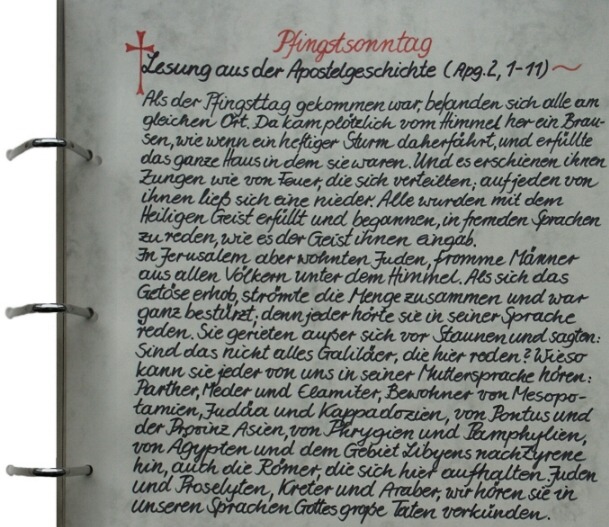 Pfingstsonntag
Lesung aus der Apostelgeschichte (Apg. 2, 1-11) ~
Als der Pfingsttag gekommen war, befanden sich alle am
gleichen Ort. Da kam plötzlich vom Himmel her ein Brau-
sen, wie wenn ein heftiger Sturm daherfährt, und erfüllte
das ganze Haus in dem sie waren. Und es erschienen ihnen
Zungen wie von Feuer, die sich verteilten; auf jeden von
ihnen ließ sich eine nieder. Alle wurden mit dem
Heiligen Geist erfüllt und begannen, in fremden Sprachen
zu reden, wie es der Geist ihnen eingab.
In Jerusalem aber wohnten Juden, fromme Männer
aus allen Völkern unter dem Himmel. Als sich das
Getöse erhob, strömte die Menge zusammen und war
ganz bestürzt; denn jeder hörte sie in seiner Sprache
reden. Sie gerieten außer sich vor Staunen und sagten:
Sind das nicht alles Galiläer, die hier reden? Wieso
kann sie jeder von uns in seiner Muttersprache hören:
Parther, Meder und Elamiter, Bewohner von Mesopo-
tamien, Judäa und Kappadozien, von Pontus und
der Provinz Asien, von Phrygien und Pamphylien,
von Ägypten und dem Gebiet Libyens nach Zyrene
hin, auch die Römer, die sich hier aufhalten. Juden
und Proselyten, Kreter und Araber, wir hören sie in
unseren Sprachen Gottes große Taten verkünden.